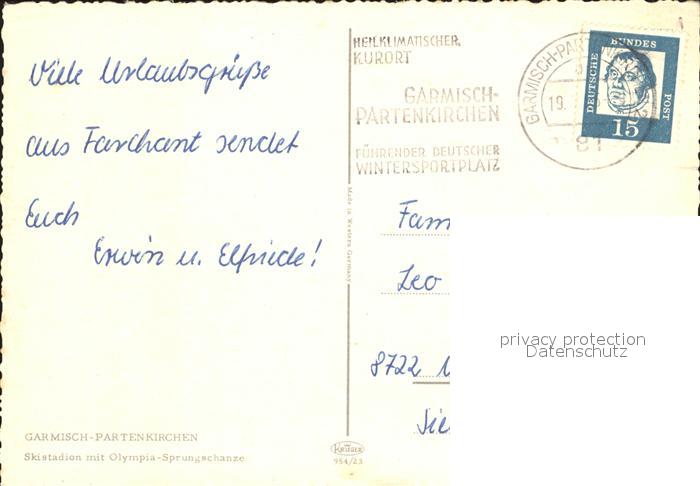 Viele Urlaubsgrüße
aus Farchant sendet
Euch
Erwin u. Elfriede!
GARMISCH-PARTENKIRCHEN
Skistadion mit Olympia-Sprungschanze
Made in Western Germany
KRÜGER
954/23
HEILKLIMATISCHER
KURORT
GARMISCH-
PARTENKIRCHEN
FÜHRENDER DEUTSCHER
WINTERSPORTPLATZ
GARMISCH-PARTENKIRCHEN
19.
81
DEUTSCHE
BUNDES
POST
15
Fam
Leo
8722
privacy protection
Datenschutz